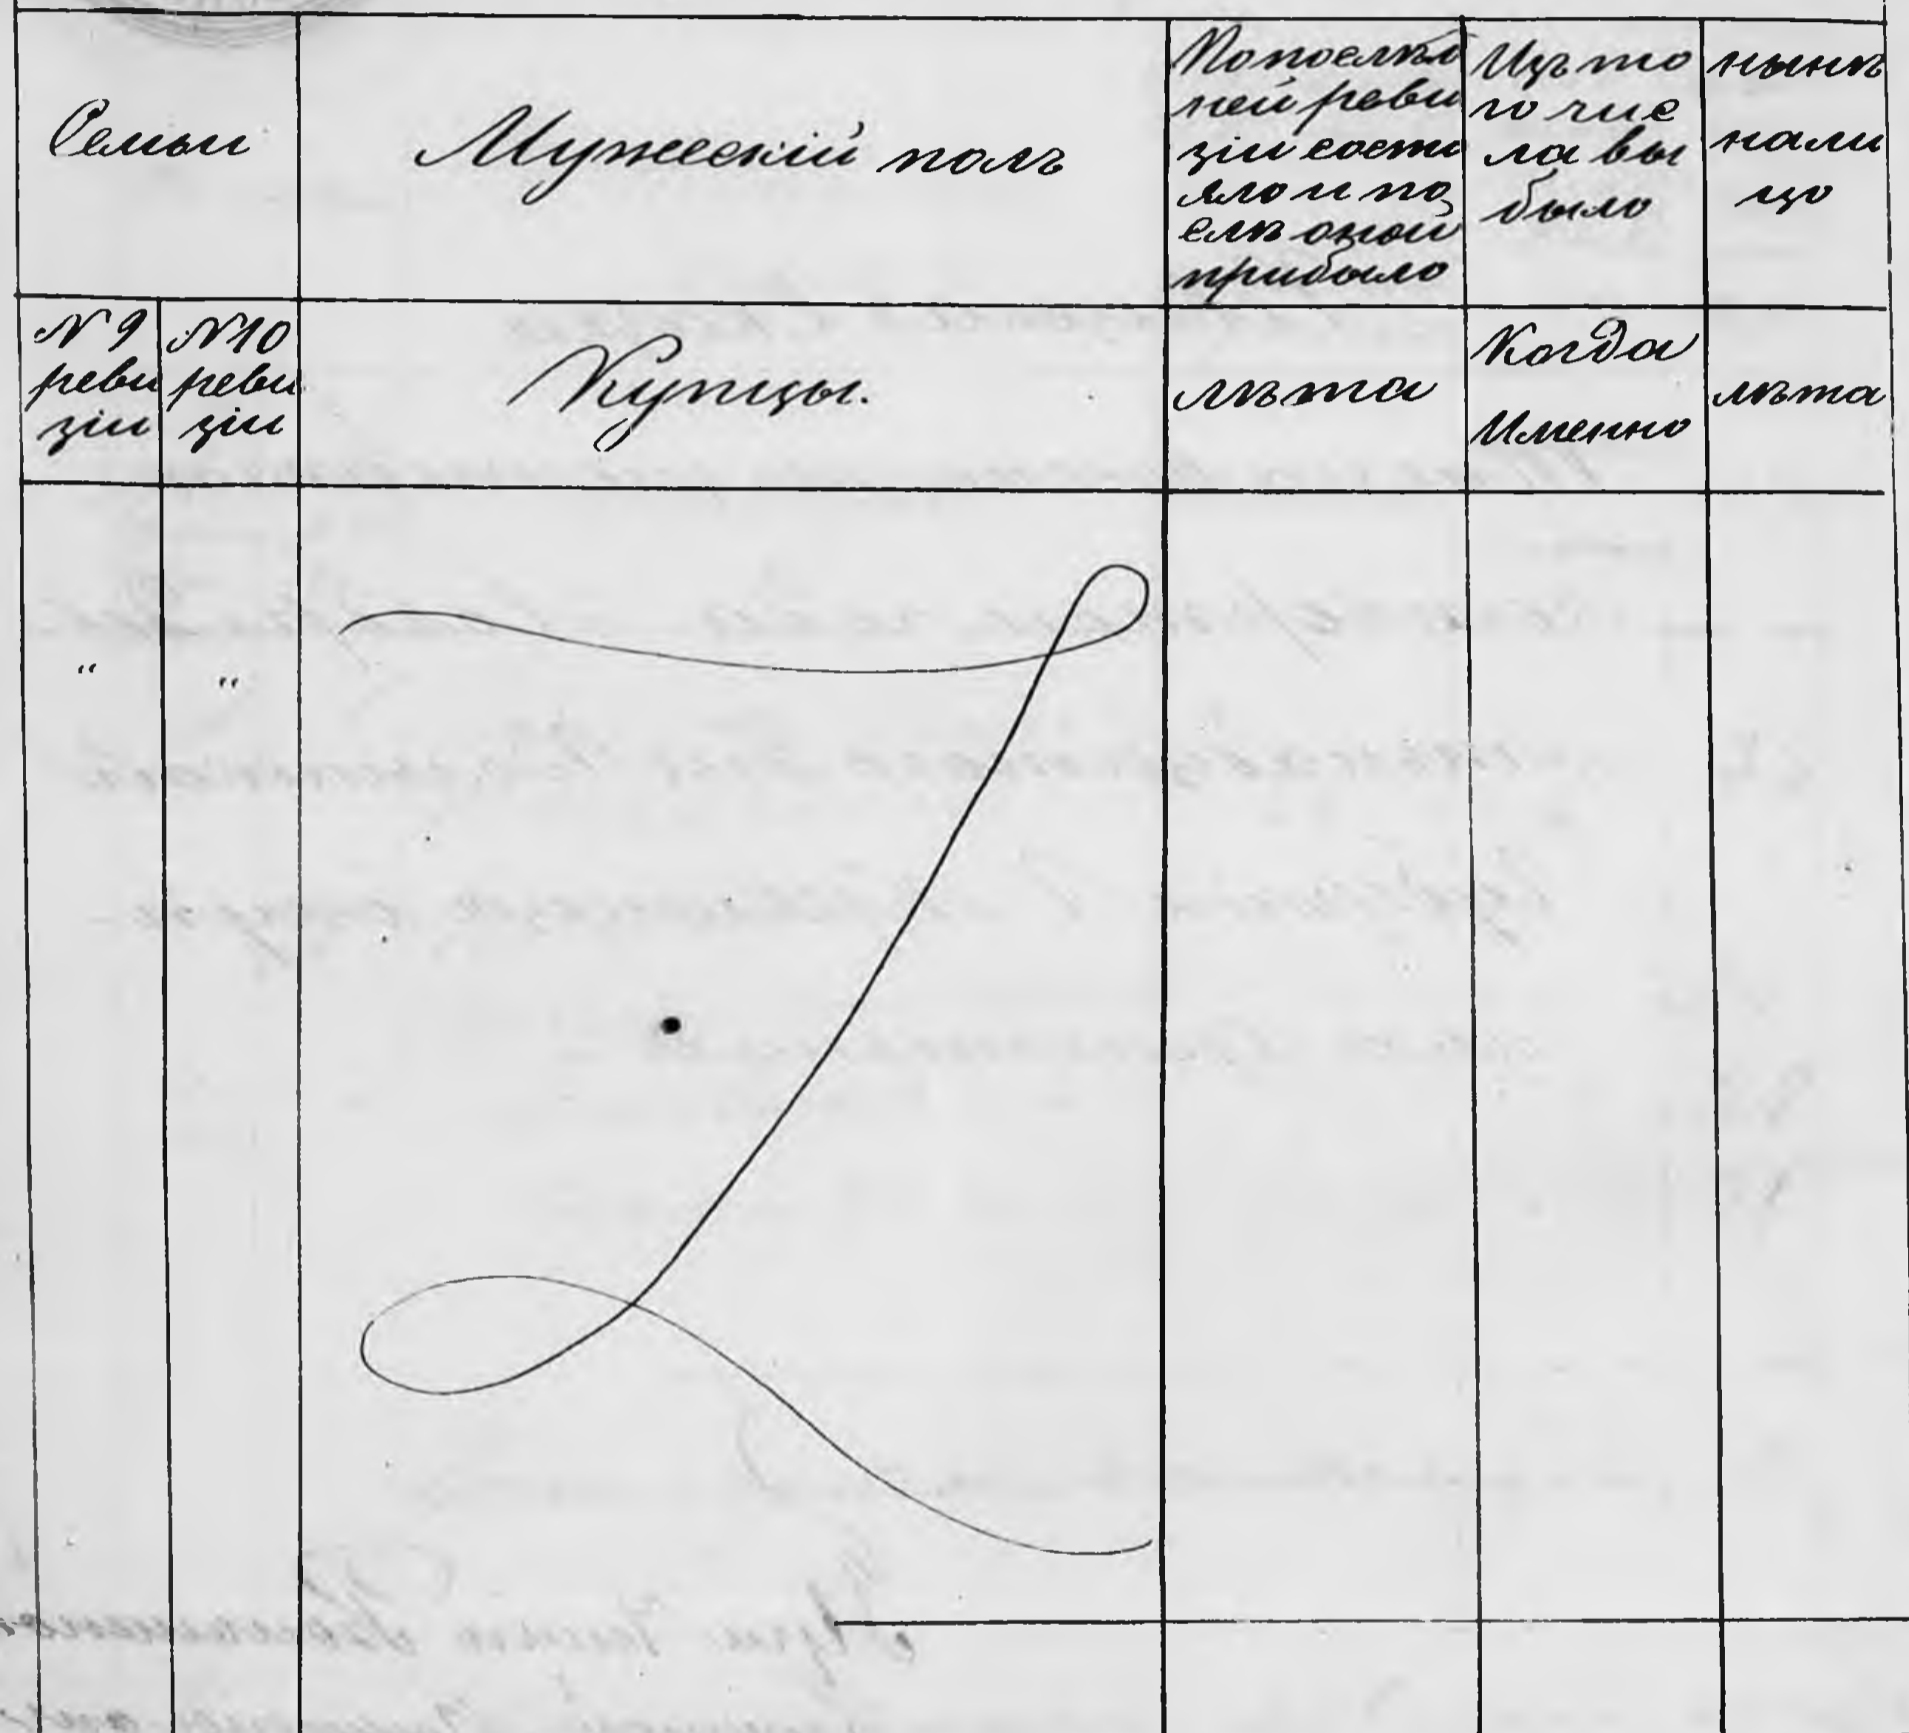 Семьи
Мужескій полъ
Попослѣд
ней реви
зіи состо
яло и по
слѣ оной
прибыло
Изъ то
го чис
ла вы
было
нынѣ
нали
цо
N 9
реви
зіи
N 10
реви
зіи
Купцы.
лѣта
Когда
Именно
лѣта
" "